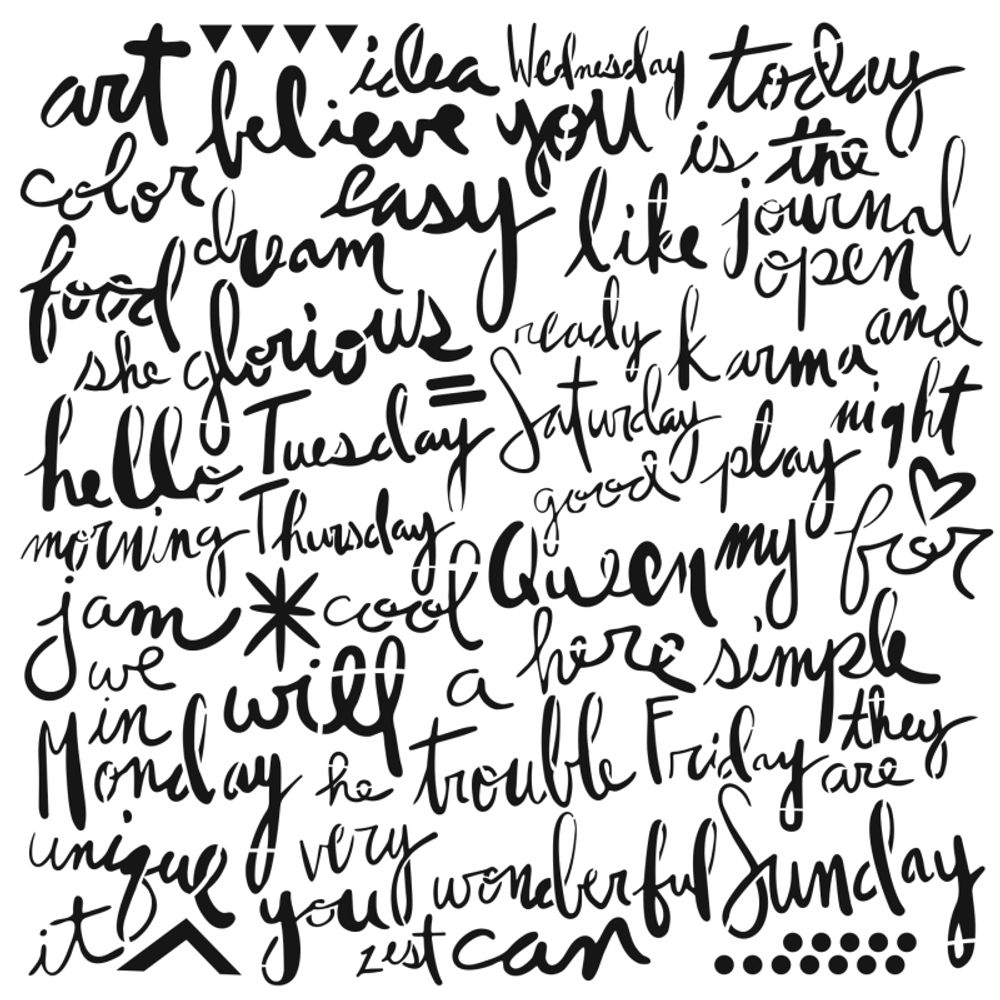 art idea Wednesday today
believe you is the
color easy like journal
dream open
food glorious ready karma and
she
hello Tuesday Saturday play night
good
morning Thursday Queen my for
jam cool here simple
we will a
in they
Monday he trouble Friday are
unique very wonderful Sunday
it you zest can